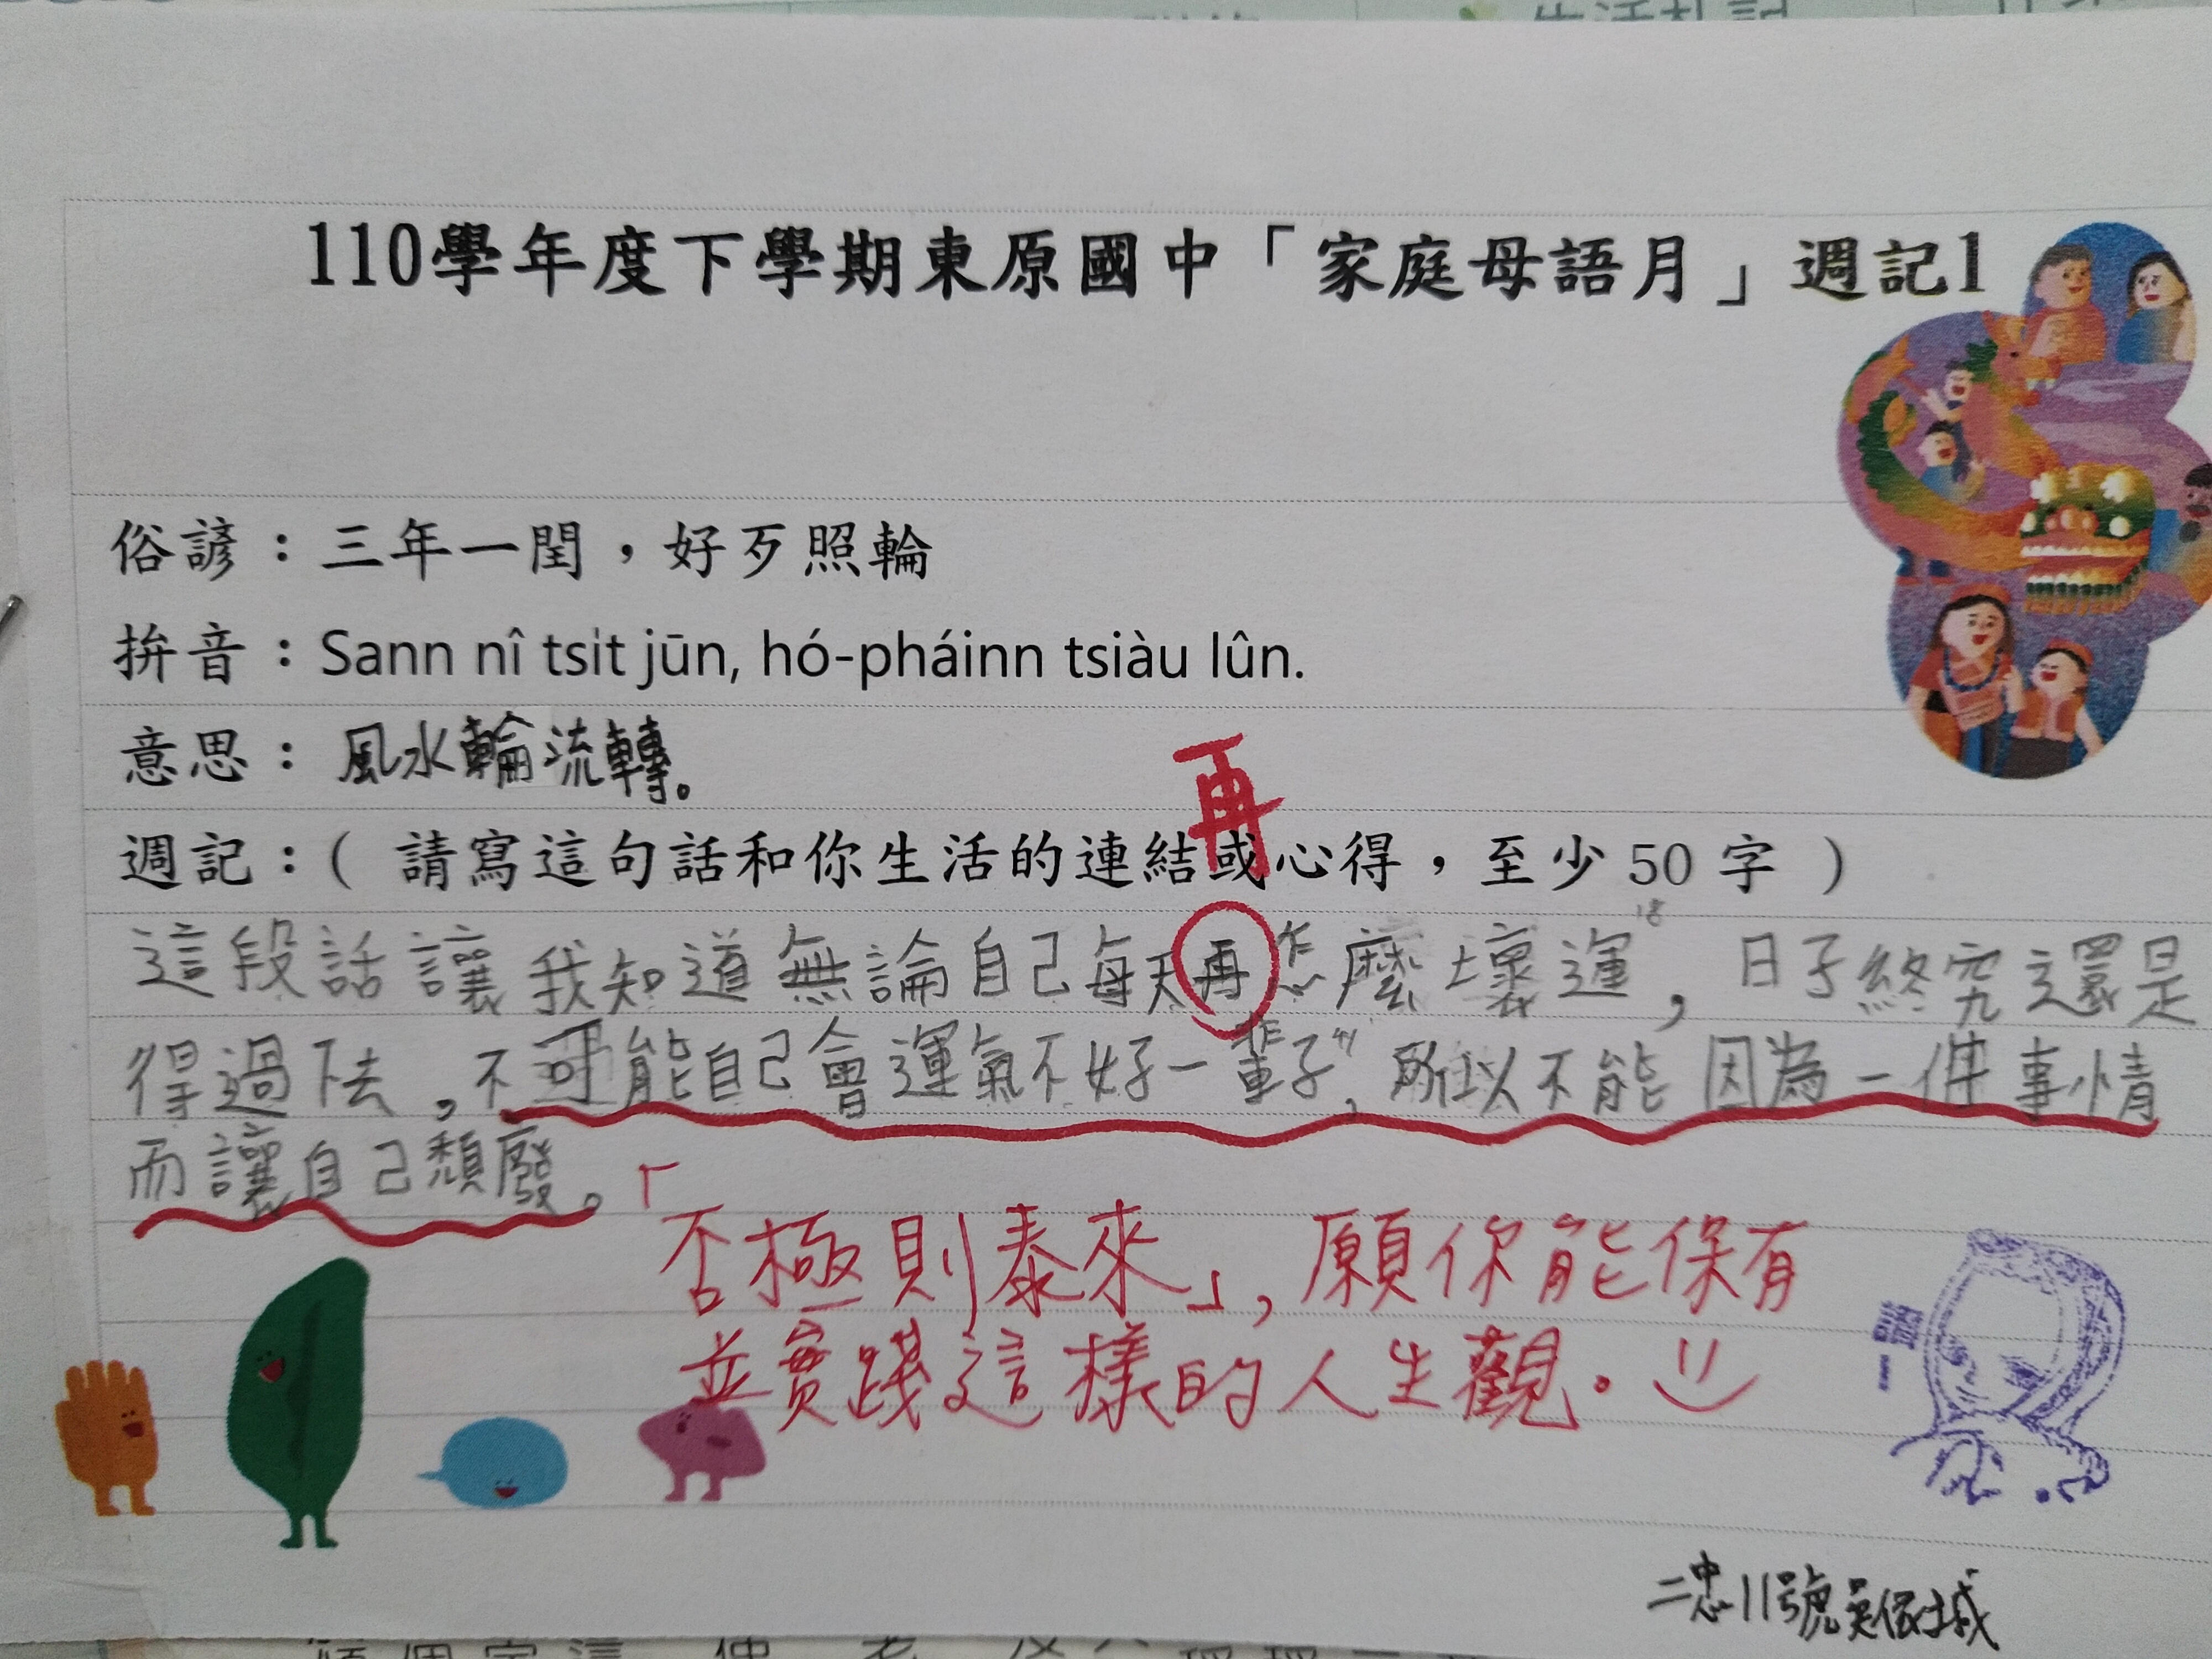 110學年度下學期東原國中「家庭母語月」週記1
俗諺：三年一閏，好歹照輪
拚音：Sann nî tsi̍t jūn, hó-pháinn tsiàu lûn.
意思：風水輪流轉。
再
週記：( 請寫這句話和你生活的連結或心得，至少 50 字 )
這段話讓我知道無論自己每天再怎麼壞運，日子終究還是
得過下去，不可能自己會運氣不好一輩子，所以不能因為一件事情
而讓自己頹廢。
「否極則泰來」，願你能保有
並實踐這樣的人生觀。
二忠11號吳依城